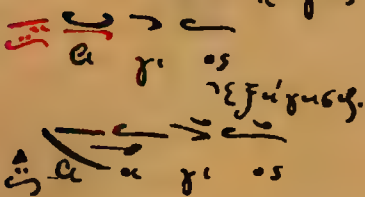 α γι ος
ἐξήγησις.
α α γι ος